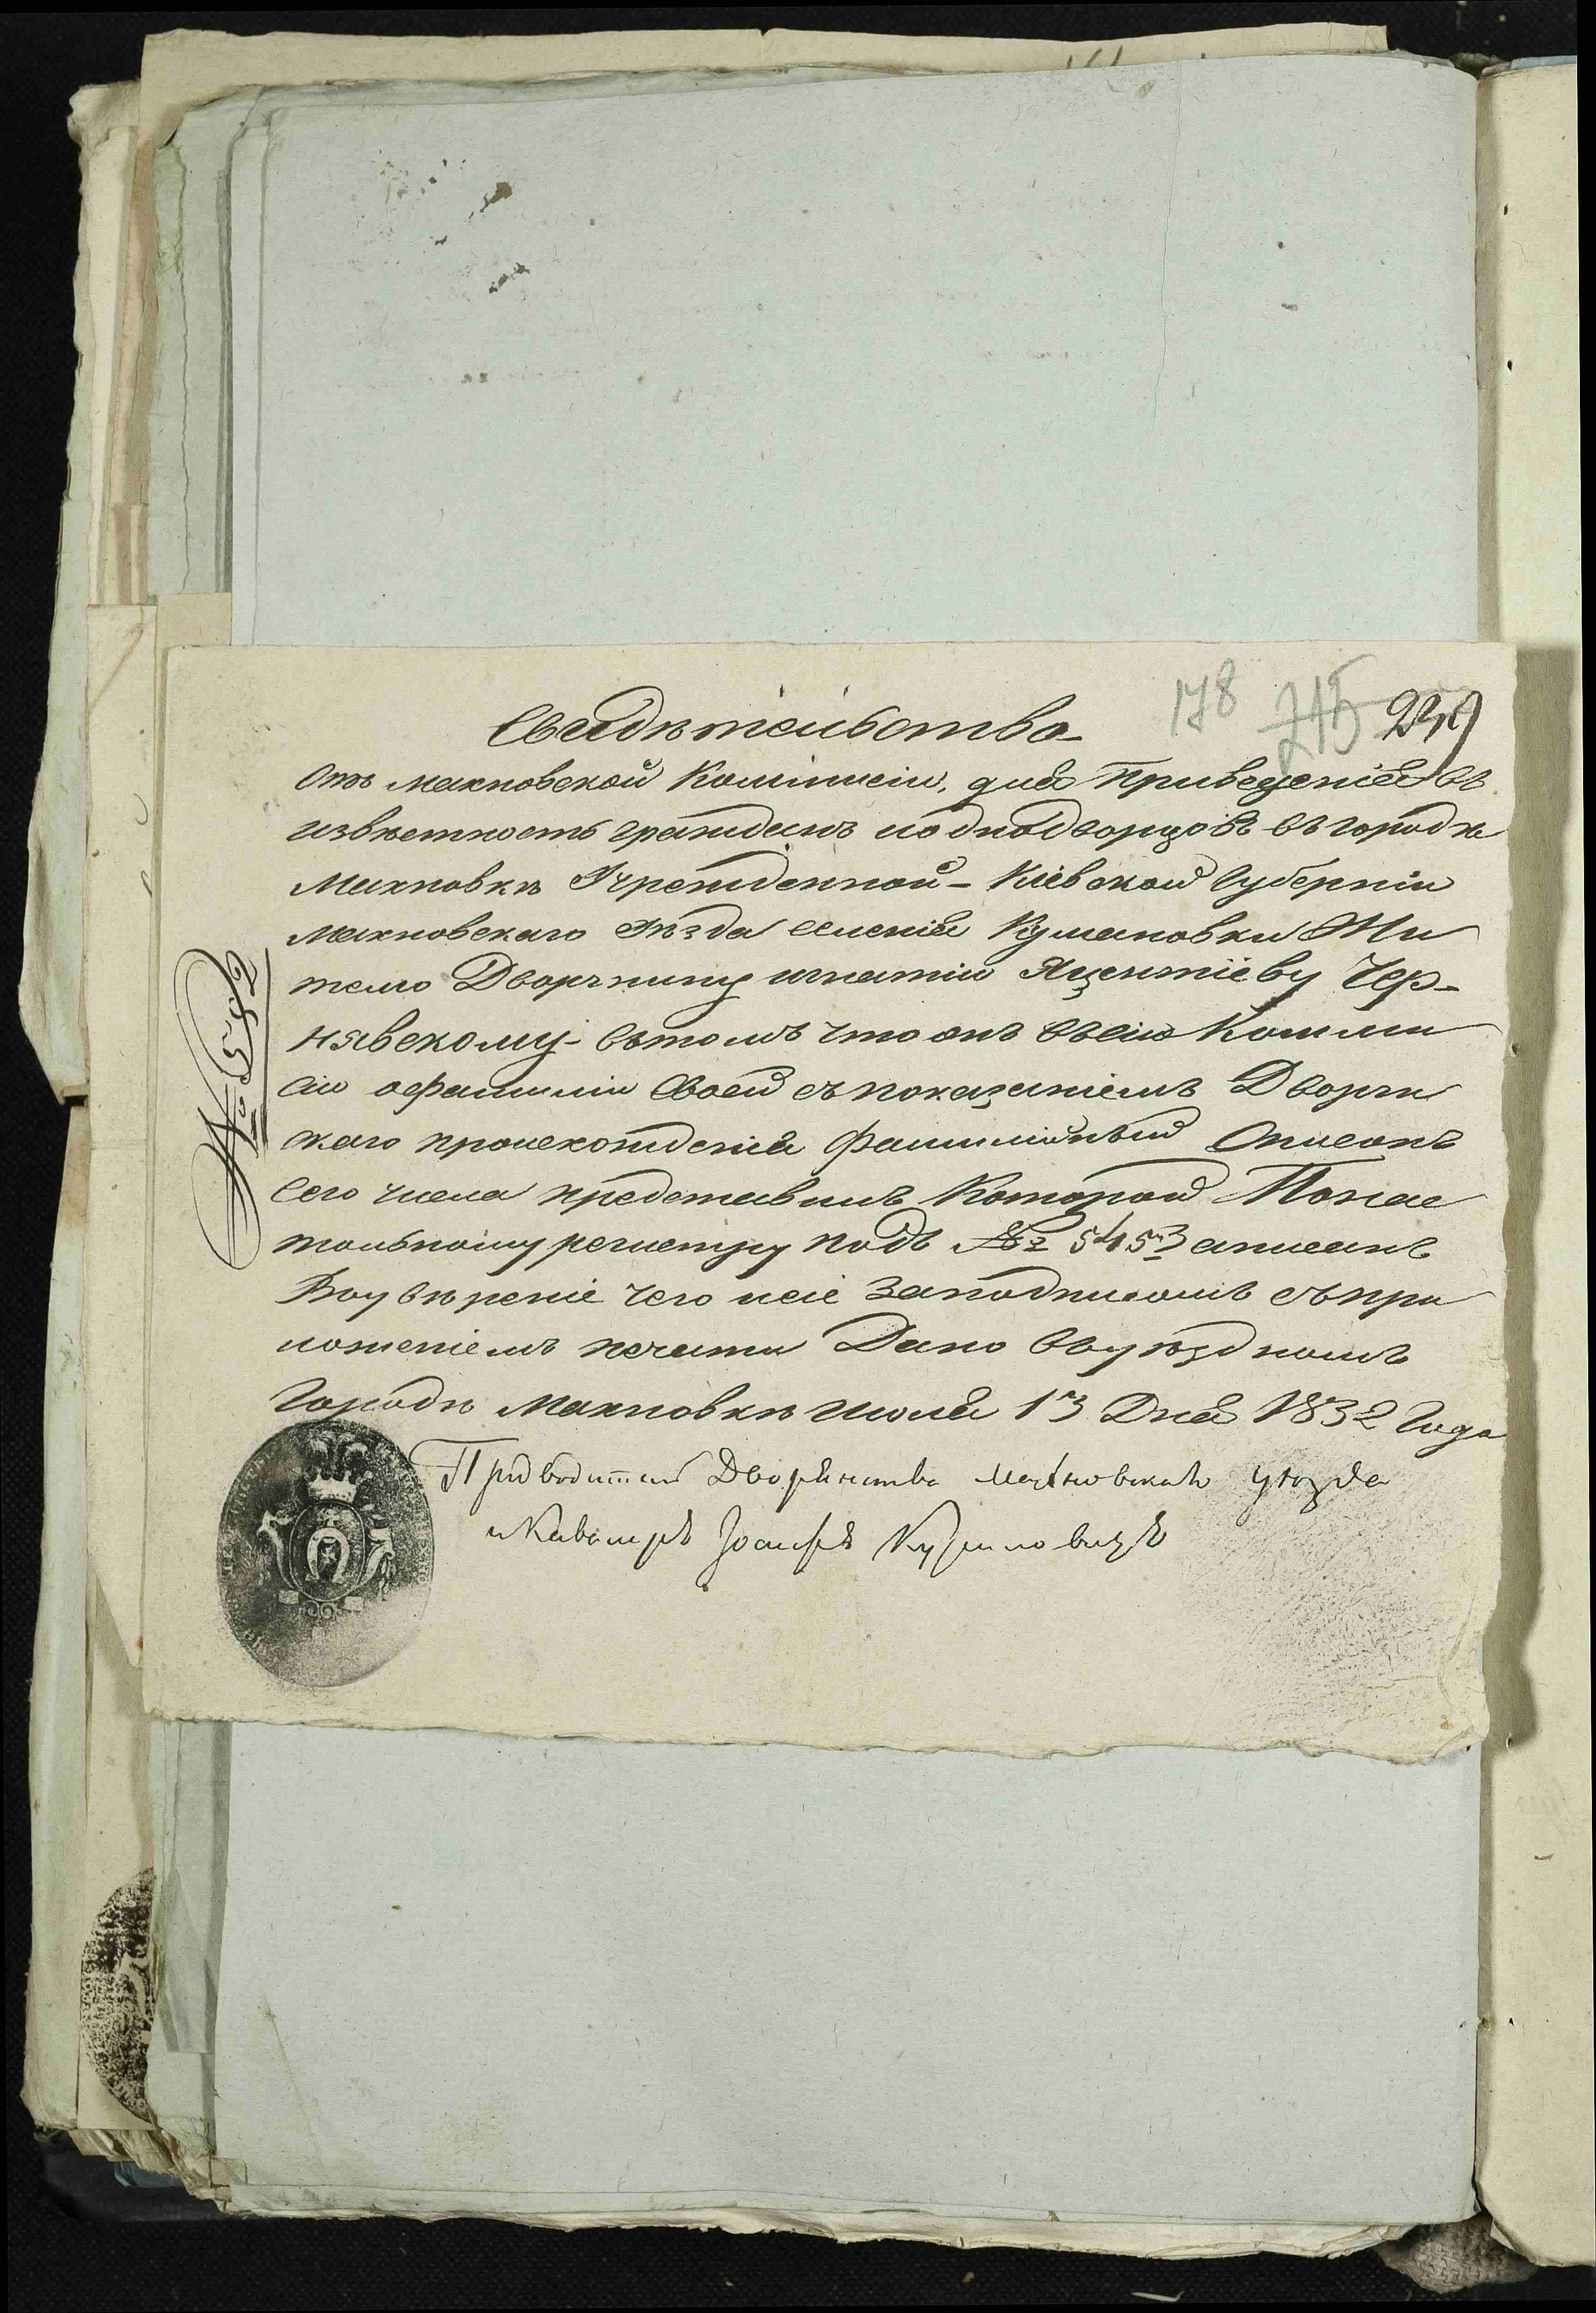 178 215 239
Свидѣтельство
Отъ Махновской Коммисіи, для Приведенія въ
извѣстность граждан и однодворцовъ въ городѣ
Махновкѣ Учрежденной - Кіевской Губерніи
Махновскаго уѣзда селенія Кумановки Жи
телю Дворянину игнатію Яцентіеву Чер-
нявскому - вътомъ что онъ въсію Комми
сію офамиліи своей съпоказаніемъ Дворян
скаго происхожденія Фамилійный Списокъ
сего числа представилъ Которой Понас
тольному регистру подъ № 545 Записанъ
Воувѣреніе чего исіе Заподписомъ съпри
ложеніемъ печати Дано Вууѣздномъ
Городѣ Махновкѣ июля 13 Дня 1832 Года
Предводитель Дворянства Махновскаго уѣзда
и Кавалеръ Іосифъ
№ 592